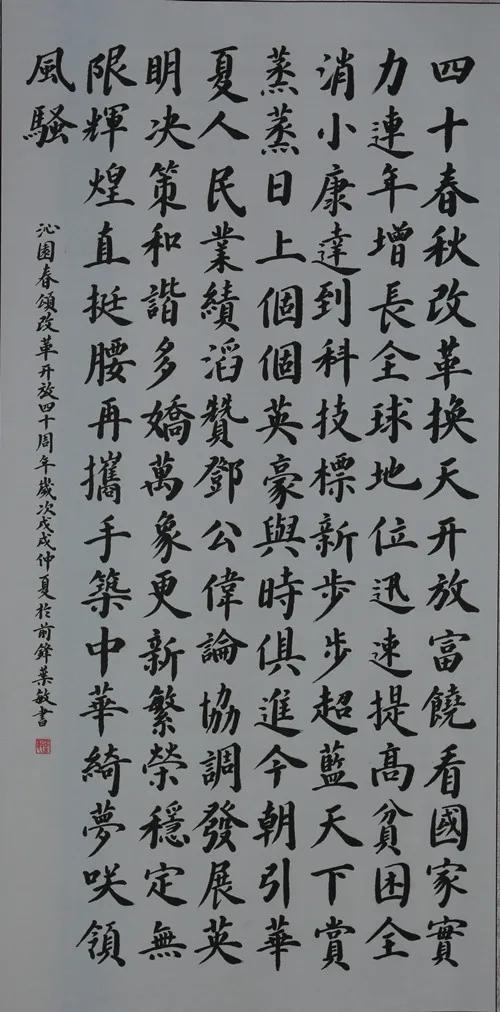 四十春秋改革換天开放富饒看國家實
力連年增長全球地位迅速提高貧困全
消小康達到科技標新步步超藍天下賞
蒸蒸日上個個英豪與時俱進今朝引華
夏人民業績滔贊鄧公偉論協調發展英
明决策和諧多嬌萬象更新繁榮穩定無
限輝煌直挺腰再攜手築中華綺夢咲領
風騷
沁園春頌改革开放四十周年歲次戊戌仲夏於前鋒葉敏書